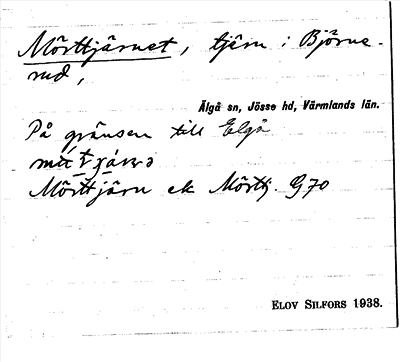 Mörttjärnet, tjärn i Björne-
rud,
Älgå sn, Jösse hd, Värmlands län.
På gränsen till Elgå
Mörttjärn ek Mörttj. G70
ELOV SILFORS 1938.